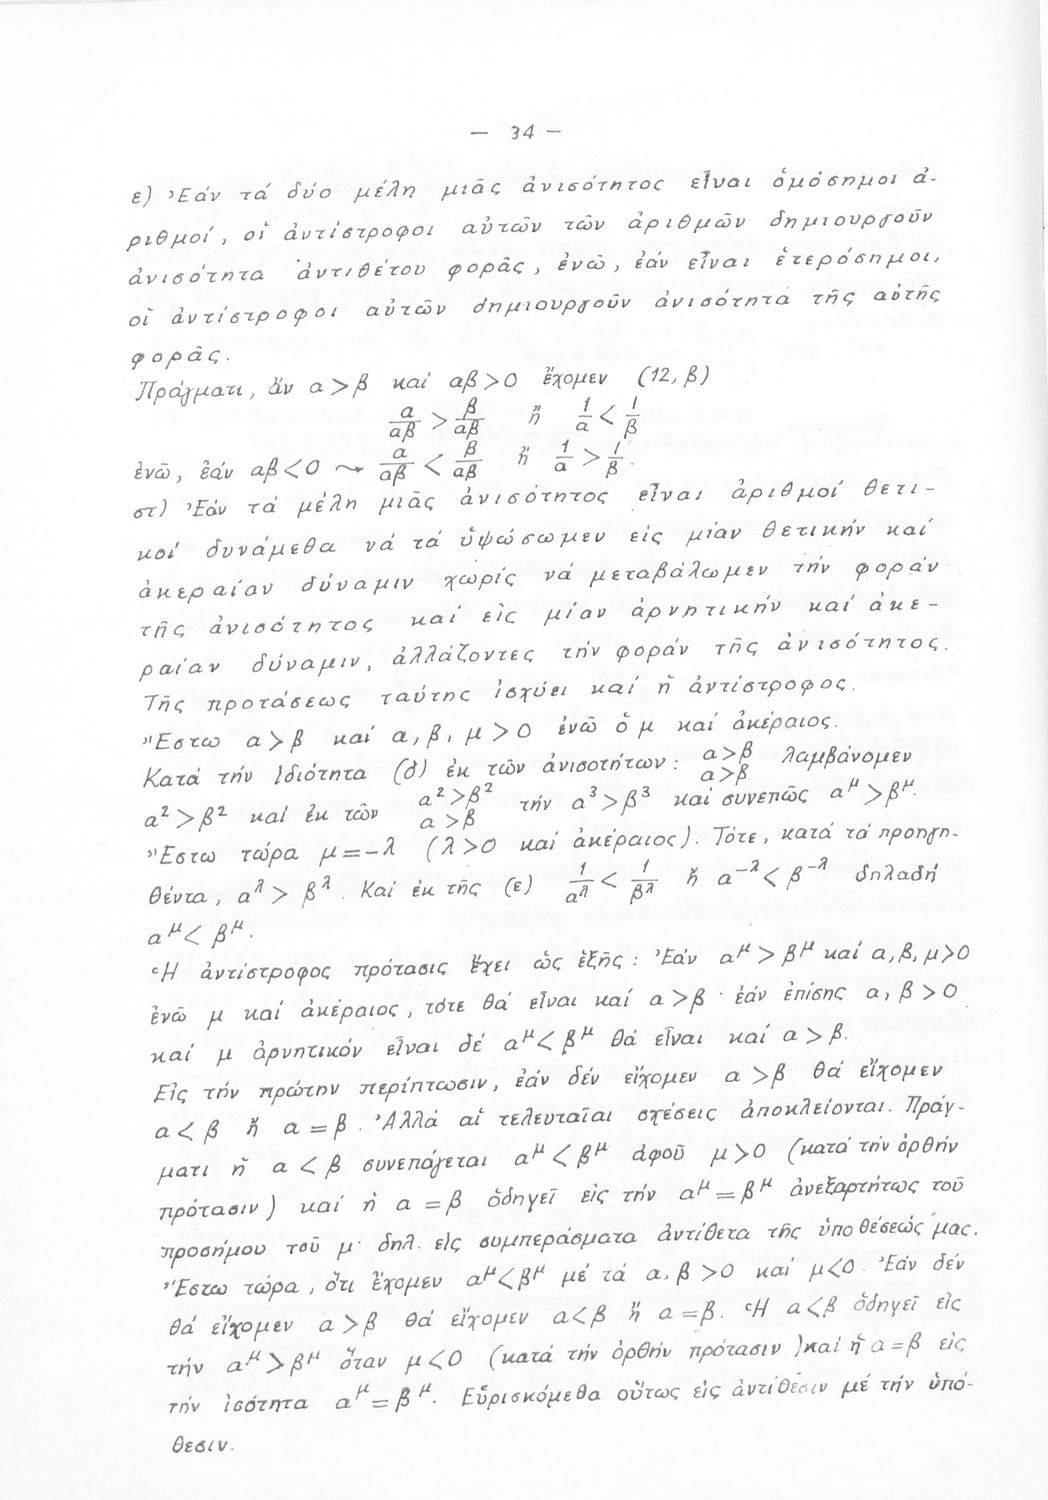 — 34 —
ε) Ἐάν τά δύο μέλη μιᾶς ἀνισότητος εἶναι ὁμόσημοι ἀ-
ριθμοί, οἱ ἀντίστροφοι αὐτῶν τῶν ἀριθμῶν δημιουργοῦν
ἀνισότητα ἀντιθέτου φορᾶς, ἐνῶ, ἐάν εἶναι ἑτερόσημοι,
οἱ ἀντίστροφοι αὐτῶν δημιουργοῦν ἀνισότητα τῆς αὐτῆς
φορᾶς.
Πράγματι, ἄν α > β καί αβ > 0 ἔχομεν (12, β)
α/αβ > β/αβ ἤ 1/α < 1/β
ἐνῶ, ἐάν αβ < 0 ⤳ α/αβ < β/αβ ἤ 1/α > 1/β.
στ) Ἐάν τά μέλη μιᾶς ἀνισότητος εἶναι ἀριθμοί θετι-
κοί δυνάμεθα νά τά ὑψώσωμεν εἰς μίαν θετικήν καί
ἀκεραίαν δύναμιν χωρίς νά μεταβάλωμεν τήν φοράν
τῆς ἀνισότητος καί εἰς μίαν ἀρνητικήν καί ἀκε-
ραίαν δύναμιν, ἀλλάζοντες τήν φοράν τῆς ἀνισότητος.
Τῆς προτάσεως ταύτης ἰσχύει καί ἡ ἀντίστροφος.
Ἔστω α > β καί α, β, μ > 0 ἐνῶ ὁ μ καί ἀκέραιος.
Κατά τήν ἰδιότητα (δ) ἐκ τῶν ἀνισοτήτων: α > β α > β λαμβάνομεν
α² > β² καί ἐκ τῶν α² > β² α > β τήν α³ > β³ καί συνεπῶς α^μ > β^μ.
Ἔστω τώρα μ = -λ (λ > 0 καί ἀκέραιος). Τότε, κατά τά προηγη-
θέντα, α^λ > β^λ. Καί ἐκ τῆς (ε) 1/α^λ < 1/β^λ ἤ α^-λ < β^-λ δηλαδή
α^μ < β^μ.
Ἡ ἀντίστροφος πρότασις ἔχει ὡς ἑξῆς: Ἐάν α^μ > β^μ καί α, β, μ > 0
ἐνῶ μ καί ἀκέραιος, τότε θά εἶναι καί α > β· ἐάν ἐπίσης α, β > 0
καί μ ἀρνητικόν εἶναι δέ α^μ < β^μ θά εἶναι καί α > β.
Εἰς τήν πρώτην περίπτωσιν, ἐάν δέν εἴχομεν α > β θά εἴχομεν
α < β ἤ α = β. Ἀλλά αἱ τελευταῖαι σχέσεις ἀποκλείονται. Πράγ-
ματι ἡ α < β συνεπάγεται α^μ < β^μ ἀφοῦ μ > 0 (κατά τήν ὀρθήν
πρότασιν) καί ἡ α = β ὁδηγεῖ εἰς τήν α^μ = β^μ ἀνεξαρτήτως τοῦ
προσήμου τοῦ μ· δηλ. εἰς συμπεράσματα ἀντίθετα τῆς ὑποθέσεώς μας.
Ἔστω τώρα, ὅτι ἔχομεν α^μ < β^μ μέ τά α, β > 0 καί μ < 0. Ἐάν δέν
θά εἴχομεν α > β θά εἴχομεν α < β ἤ α = β. Ἡ α < β ὁδηγεῖ εἰς
τήν α^μ > β^μ ὅταν μ < 0 (κατά τήν ὀρθήν πρότασιν) καί ἡ α = β εἰς
τήν ἰσότητα α^μ = β^μ. Εὑρισκόμεθα οὕτως εἰς ἀντίθεσιν μέ τήν ὑπό-
θεσιν.